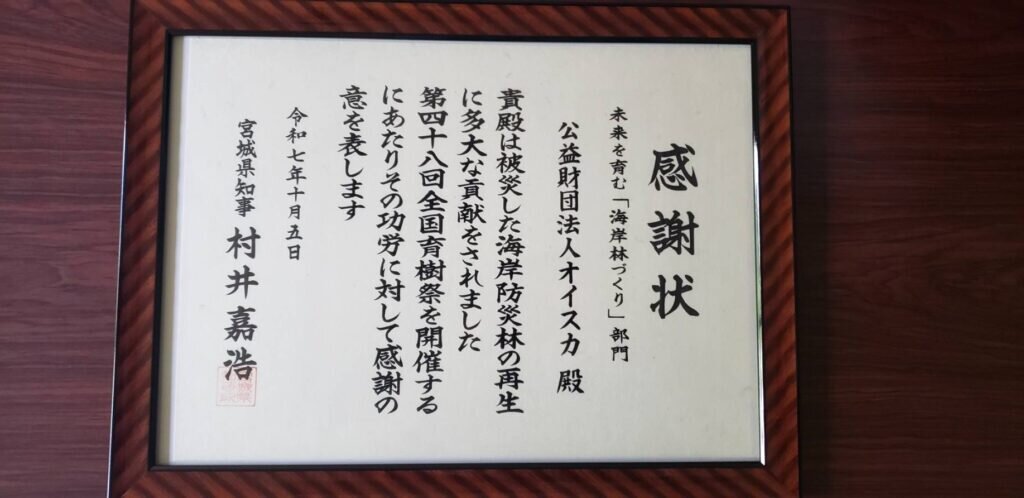 感謝状
未来を育む「海岸林づくり」部門
公益財団法人オイスカ 殿
貴殿は被災した海岸防災林の再生
に多大な貢献をされました
第四十八回全国育樹祭を開催する
にあたりその功労に対して感謝の
意を表します
令和七年十月五日
宮城県知事 村井嘉浩